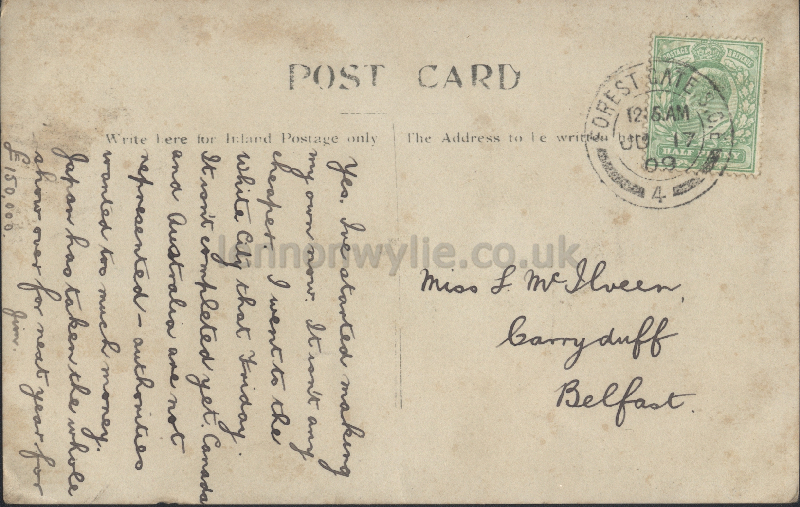 POST CARD
Write here for Inland Postage only
The Address to be written here
FOREST GATE
12.15AM
JU 17
09
4
POSTAGE
HALF PENNY
Yes. I've started making
my own now. It isn't any
cheaper. I went to the
White City that Friday.
It isn't completed yet. Canada
and Australia are not
represented - authorities
wanted too much money.
Japan has taken the whole
show over for next year for
£150,000. Jim.
Miss L McIlveen,
Carryduff
Belfast.
lennonwylie.co.uk